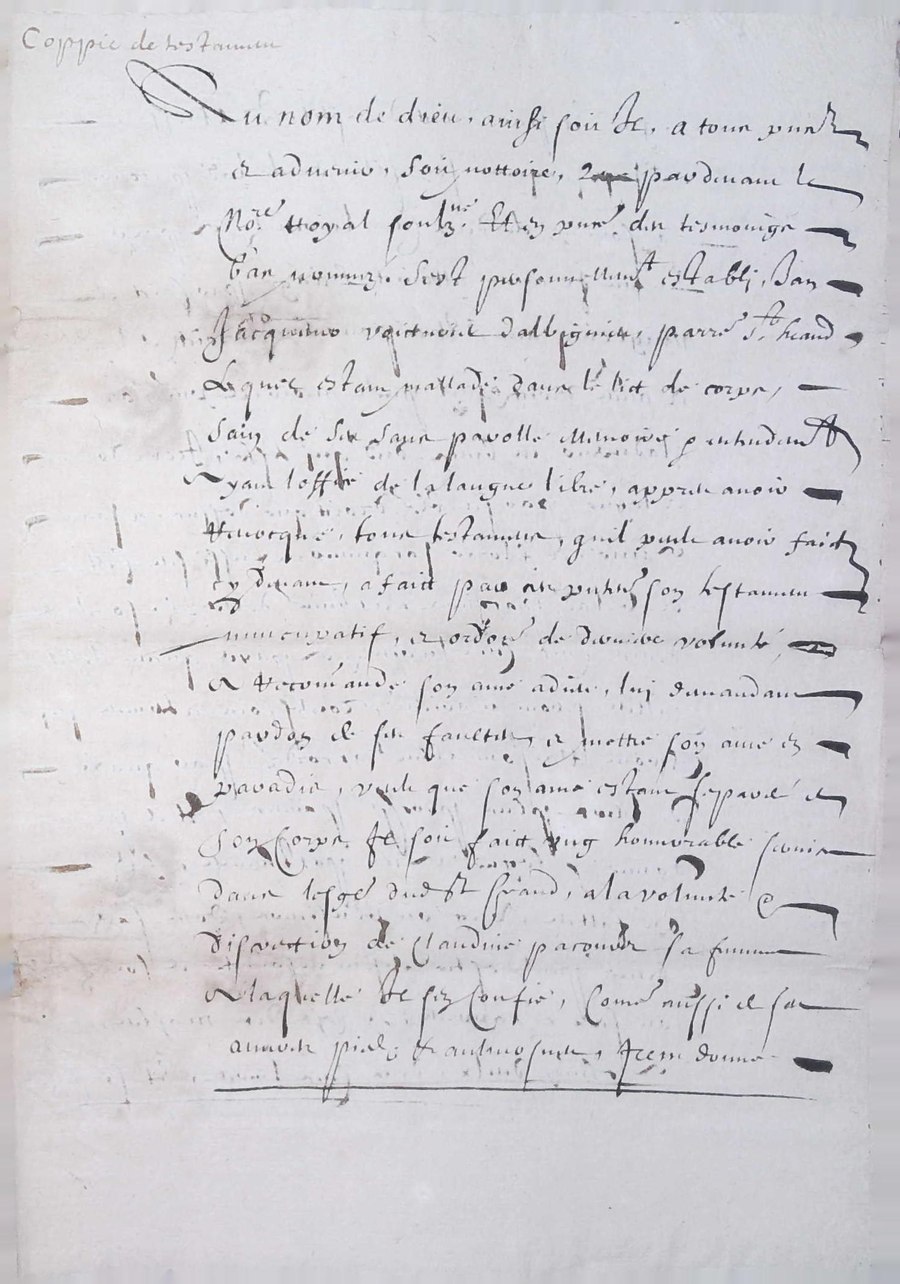 Coppie de testament
Au nom de dieu, ainsi soit Il, a tous pnts
et advenir, soit nottoire, que pardevant le
No.re Royal soubz.né Et en pnce des tesmoings
bas nommés s'est personnellemt establi, Jan
Jacquemo d'albignieu, parre St heand
Lequel estant mallade dans le lict de corps,
sain de ses sans parolle memoire et entendemt
Ayant loffice de la langue libre, appres avoir
Revocqué, tous testamens, quil peult avoir faict
cy devant, a faict par ces pntes son testament
nuncupatif, et ordre de derniere volunté,
A Recomandé son ame a dieu, lui demandant
pardon de ses faultes, et mettre son ame en
paradis, veult que son ame estant separé de
son Corps Il soit faict ung honnorable service
dans lesge dud St heand, a la volunte &
discrection de Claudine sa femme
A laquelle Il sen Confie, Come aussi de ses
aumosnes, Item donne